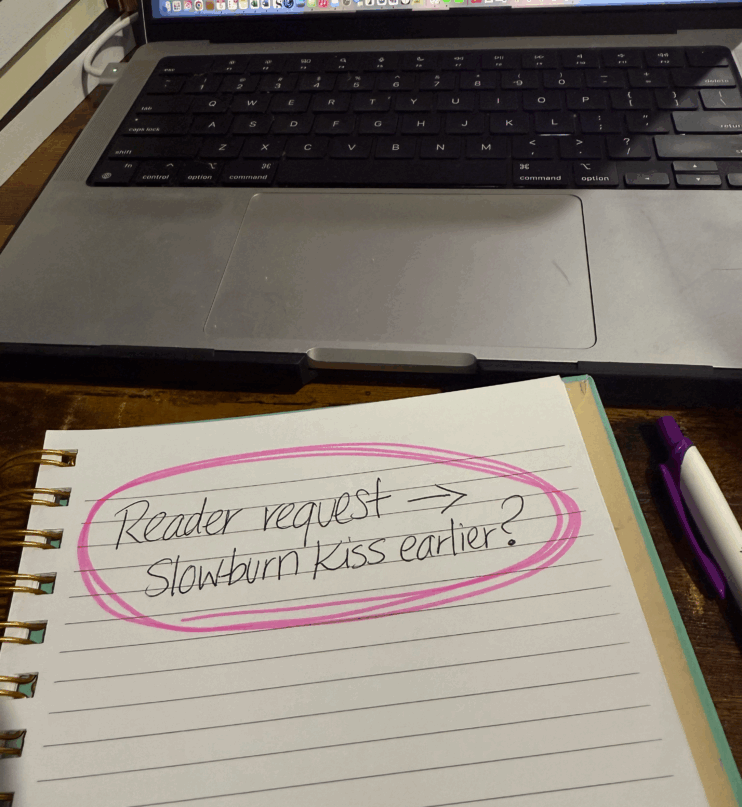 esc F1 F2 F3 F4 F5 F6 F7 F8 F9 F10 F11 F12
! 1 @ 2 # 3 $ 4 % 5 ^ 6 & 7 * 8 ( 9 ) 0 _ - + = delete
tab Q W E R T Y U I O P { [ } ] | \
caps lock A S D F G H J K L : ; " ' return
shift Z X C V B N M < , > . ? /
fn control option command command option
Reader request →
Slow-burn Kiss earlier?